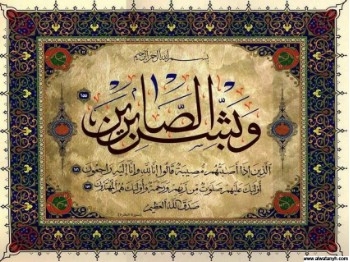 بسم الله الرحمن الرحيم
وبشر الصابرين ١٥٥
الذين إذا أصابتهم مصيبة قالوا إنا لله وإنا إليه راجعون ١٥٦
أولئك عليهم صلوات من ربهم ورحمة وأولئك هم المهتدون ١٥٧
صدق الله العظيم
www.alwatanyh.com